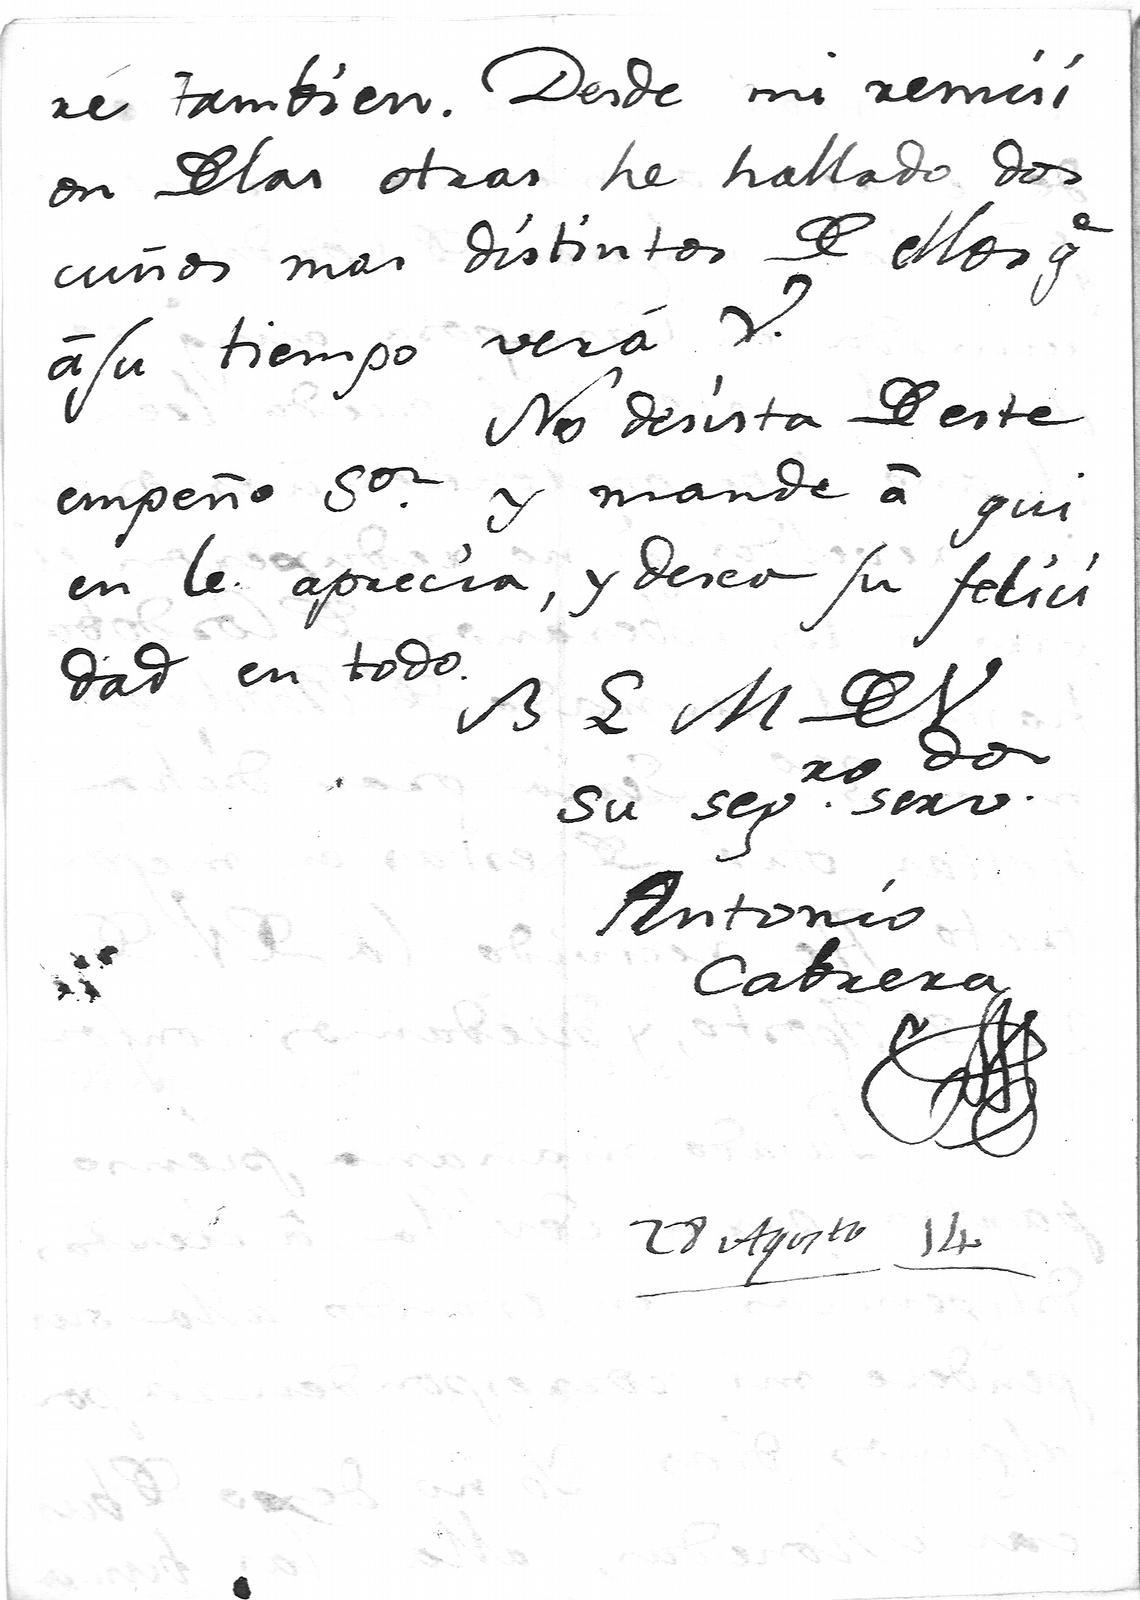 ré tambien. Desde mi remisi
on De las otras he hallado dos
cuños mas distintos De ellos q.e
â su tiempo verá V.
No desista De este
empeño S.or y mande â qui
en le aprecia, y desea su felici
dad en todo.
B L M De V
su seg.ro serv.dor
Antonio
Cabrera
28 Agosto 14